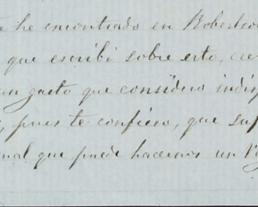 he encontrado en Roberts
que escribí sobre esto, cre
un gasto que considero indis
pues te confieso, que suf
que puede hacernos un